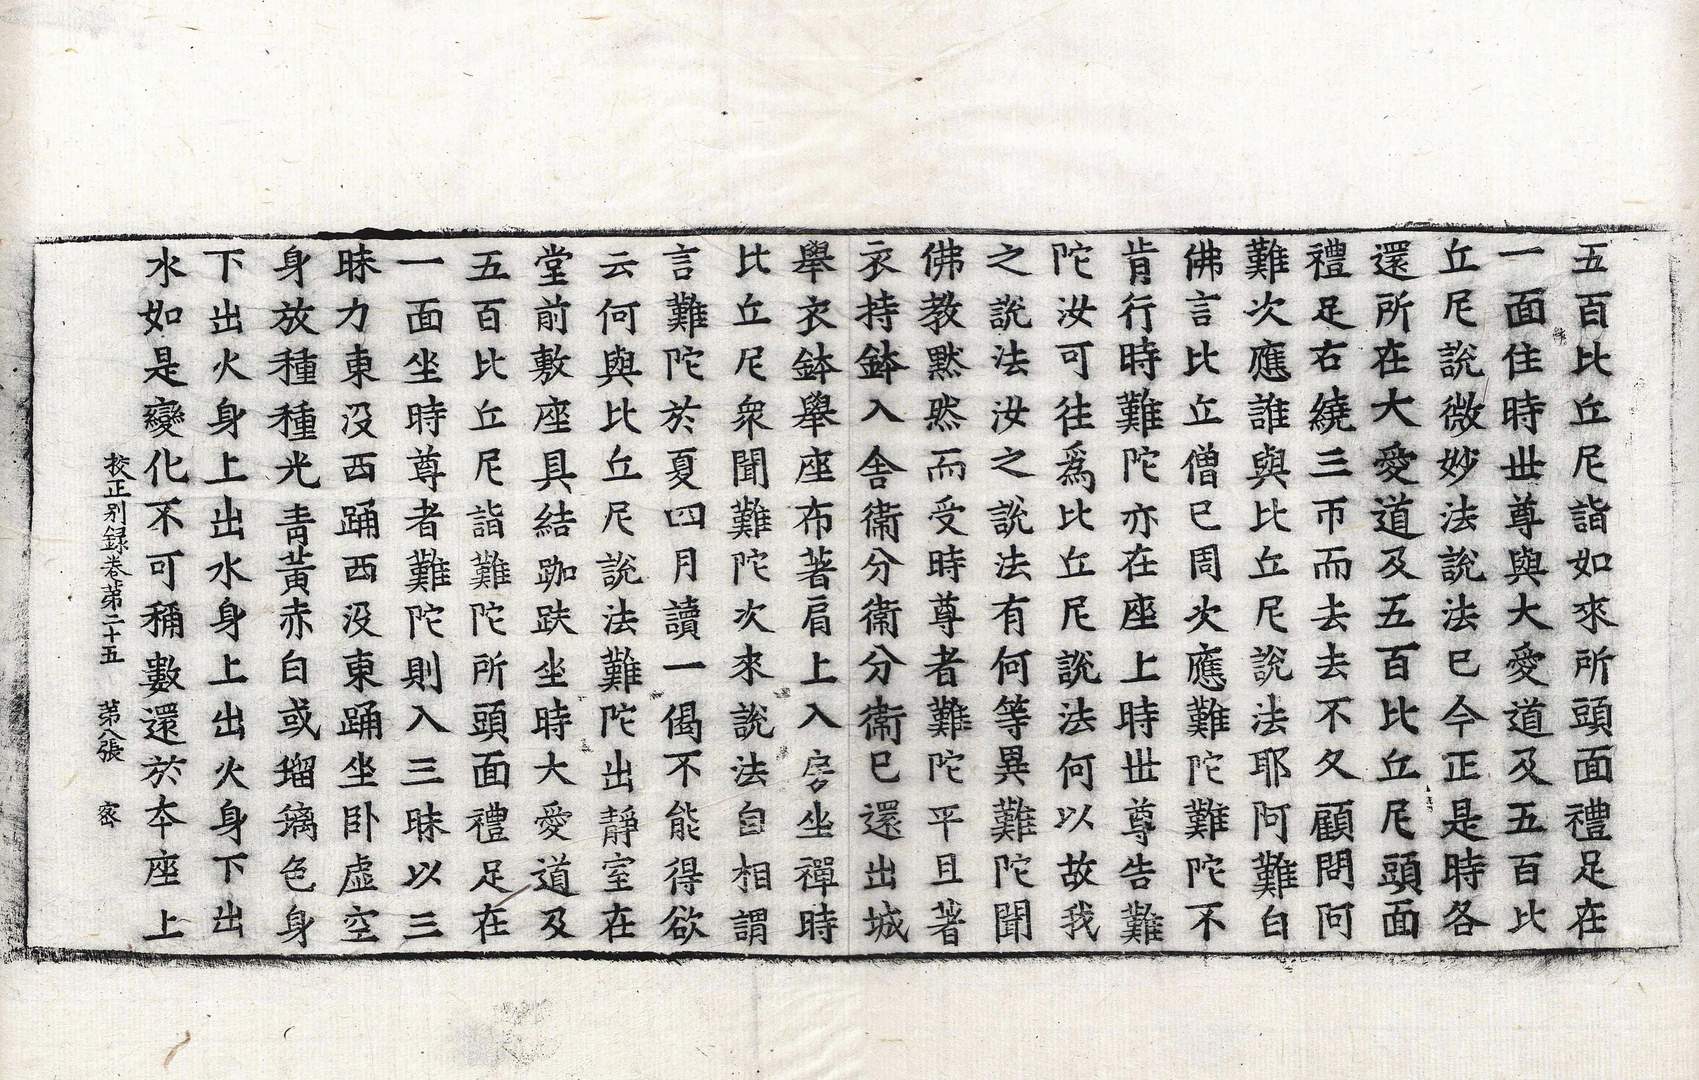 五百比丘尼詣如來所頭面禮足在
一面住時世尊與大愛道及五百比
丘尼說微妙法說法已今正是時各
還所在大愛道及五百比丘尼頭面
禮足右繞三帀而去去不久顧問阿
難次應誰與比丘尼說法耶阿難白
佛言比丘僧已周次應難陀難陀不
肯行時難陀亦在座上時世尊告難
陀汝可往爲比丘尼說法何以故我
之說法汝之說法有何等異難陀聞
佛教黙然而受時尊者難陀平旦著
衣持鉢入舍衛分衛分衛已還出城
舉衣鉢舉座布著肩上入房坐禪時
比丘尼衆聞難陀次來說法自相謂
言難陀於夏四月讀一偈不能得欲
云何與比丘尼說法難陀出靜室在
堂前敷座具結跏趺坐時大愛道及
五百比丘尼詣難陀所頭面禮足在
一面坐時尊者難陀則入三昧以三
昧力東没西踊西没東踊坐卧虛空
身放種種光青黃赤白或瑠璃色身
下出火身上出水身上出火身下出
水如是變化不可稱數還於本座上
校正別録卷苐二十五　苐八張　密